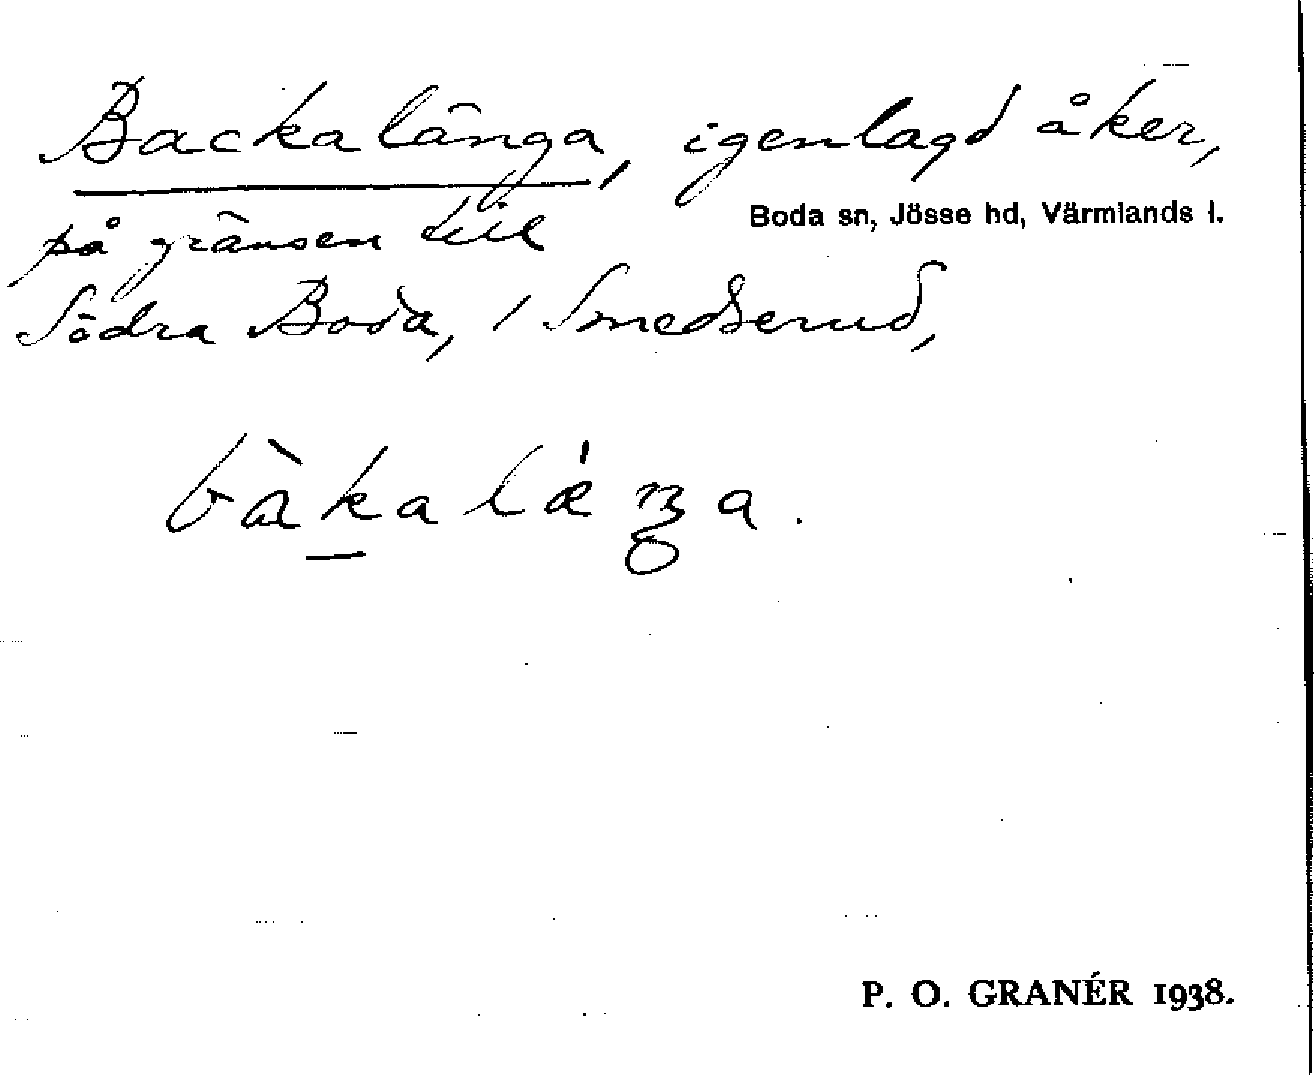 Backalänga, igenlagd åker,
Boda sn, Jösse hd, Värmlands l.
på gränsen till
Södra Boda, i Smedserud,
bàkalǽŋa.
P. O. GRANÉR 1938.